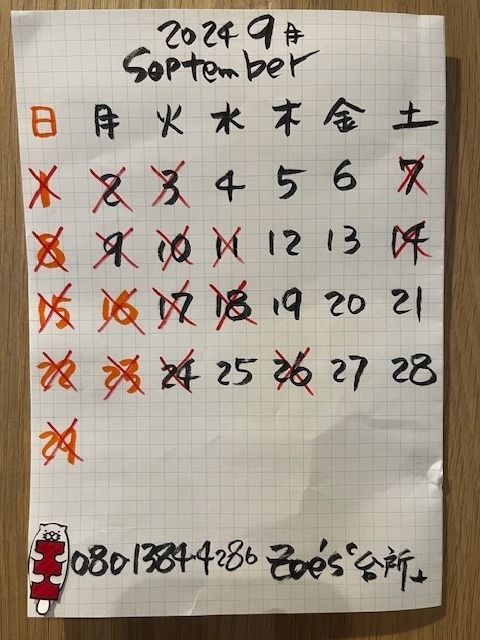 2024 9月
September
日 月 火 水 木 金 土
1 2 3 4 5 6 7
8 9 10 11 12 13 14
15 16 17 18 19 20 21
22 23 24 25 26 27 28
29
080-1384-4286 Zoe's 台所